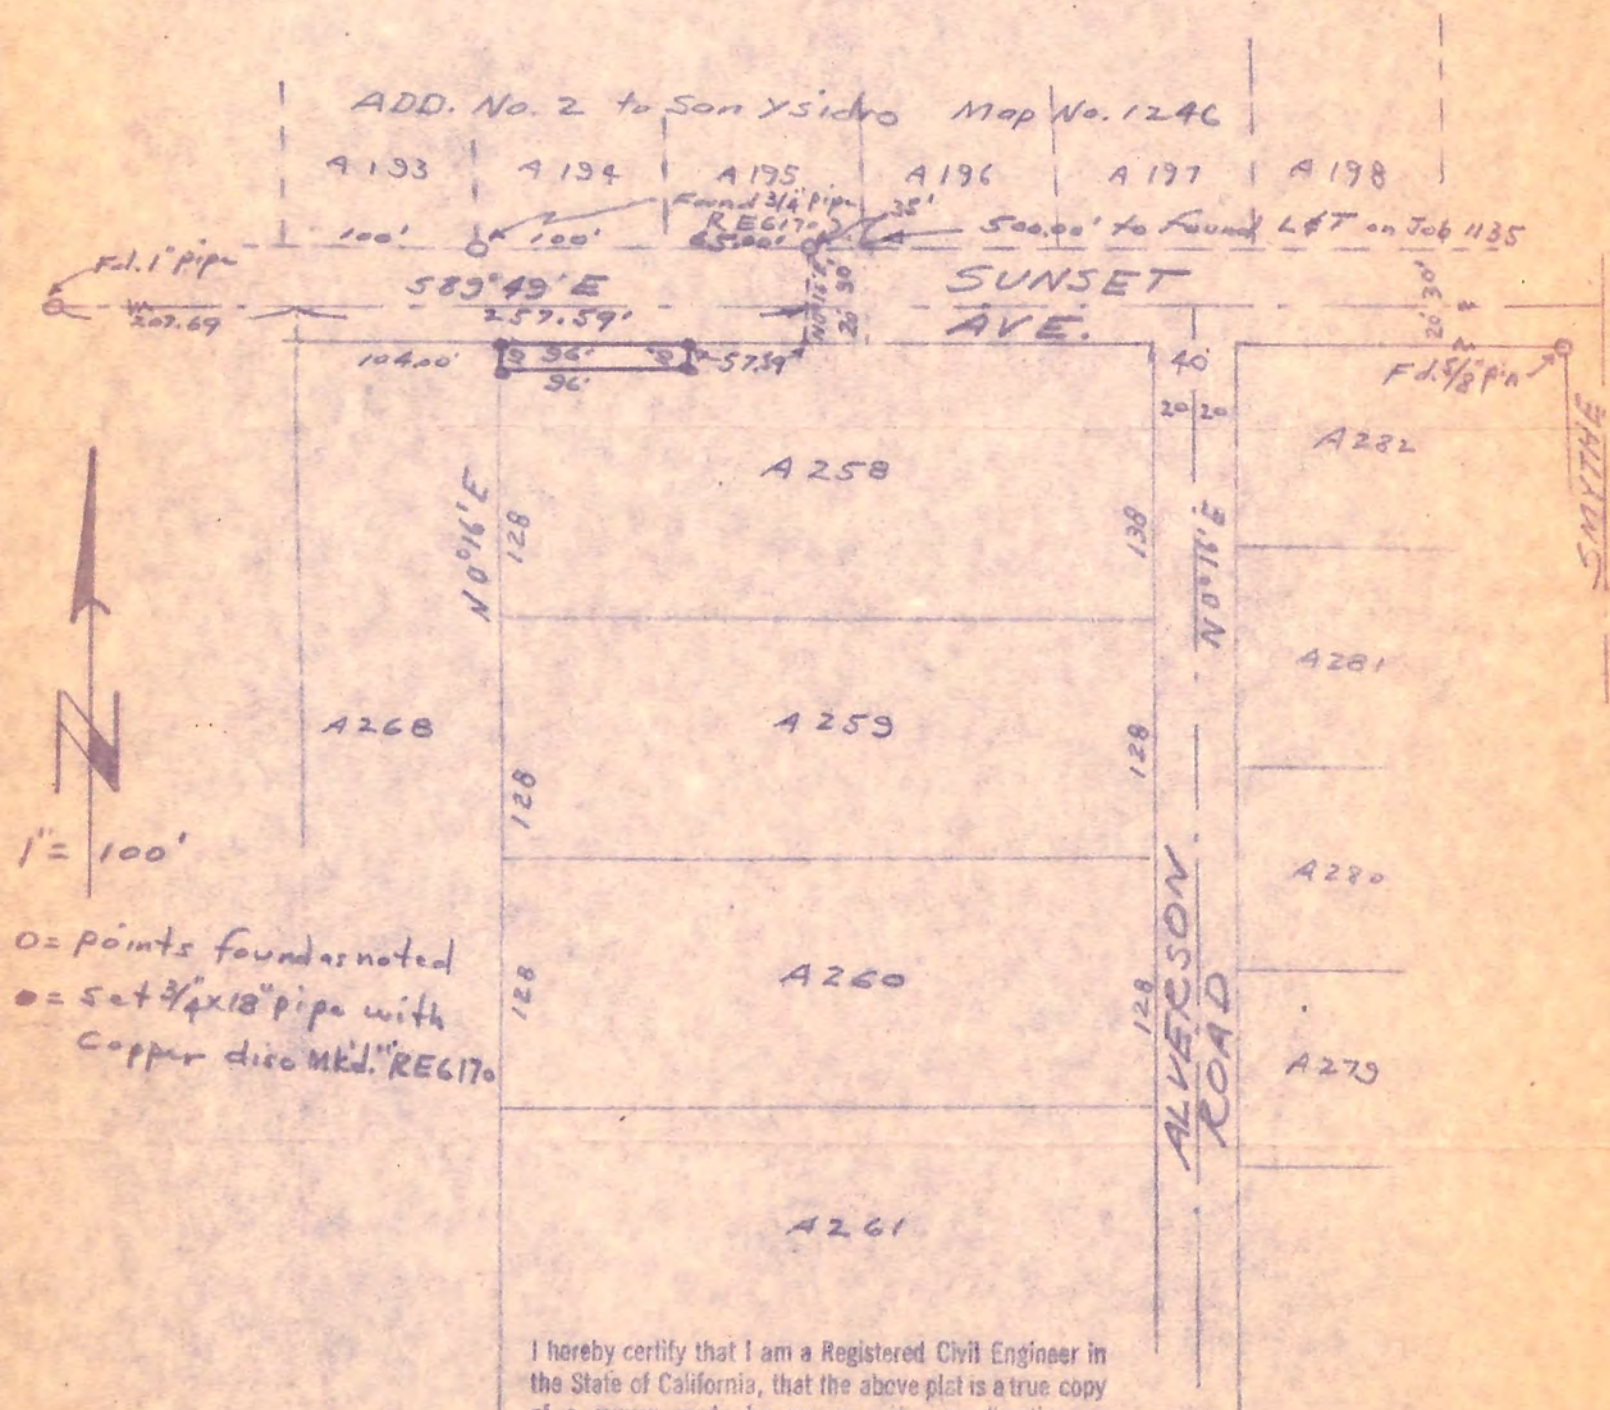 ADD. No. 2 to San Ysidro Map No. 1246
A 193 A 194 A 195 A 196 A 197 A 198
Found 3/4" pipe
RE6170
35'
100' 100' 65.00' 500.00' to Found L&T on Job 1135
Fd. 1" pipe
S89°49'E
SUNSET
AVE.
207.69 257.59'
N0°16'E
20' 30'
20' 30'
104.00' 96' 57.59'
96'
40
20 20
Fd. 5/8" pin
SMYTHE
A 258
A 282
N0°16'E
128
138
N0°16'E
A 281
A 268
A 259
128
128
1" = 100'
A 280
ALVERSON
ROAD
o = points found as noted
• = Set 3/4"x18" pipe with
Copper disc Mk'd. "RE6170
A 260
128
128
A 279
A 261
I hereby certify that I am a Registered Civil Engineer in
the State of California, that the above plat is a true copy